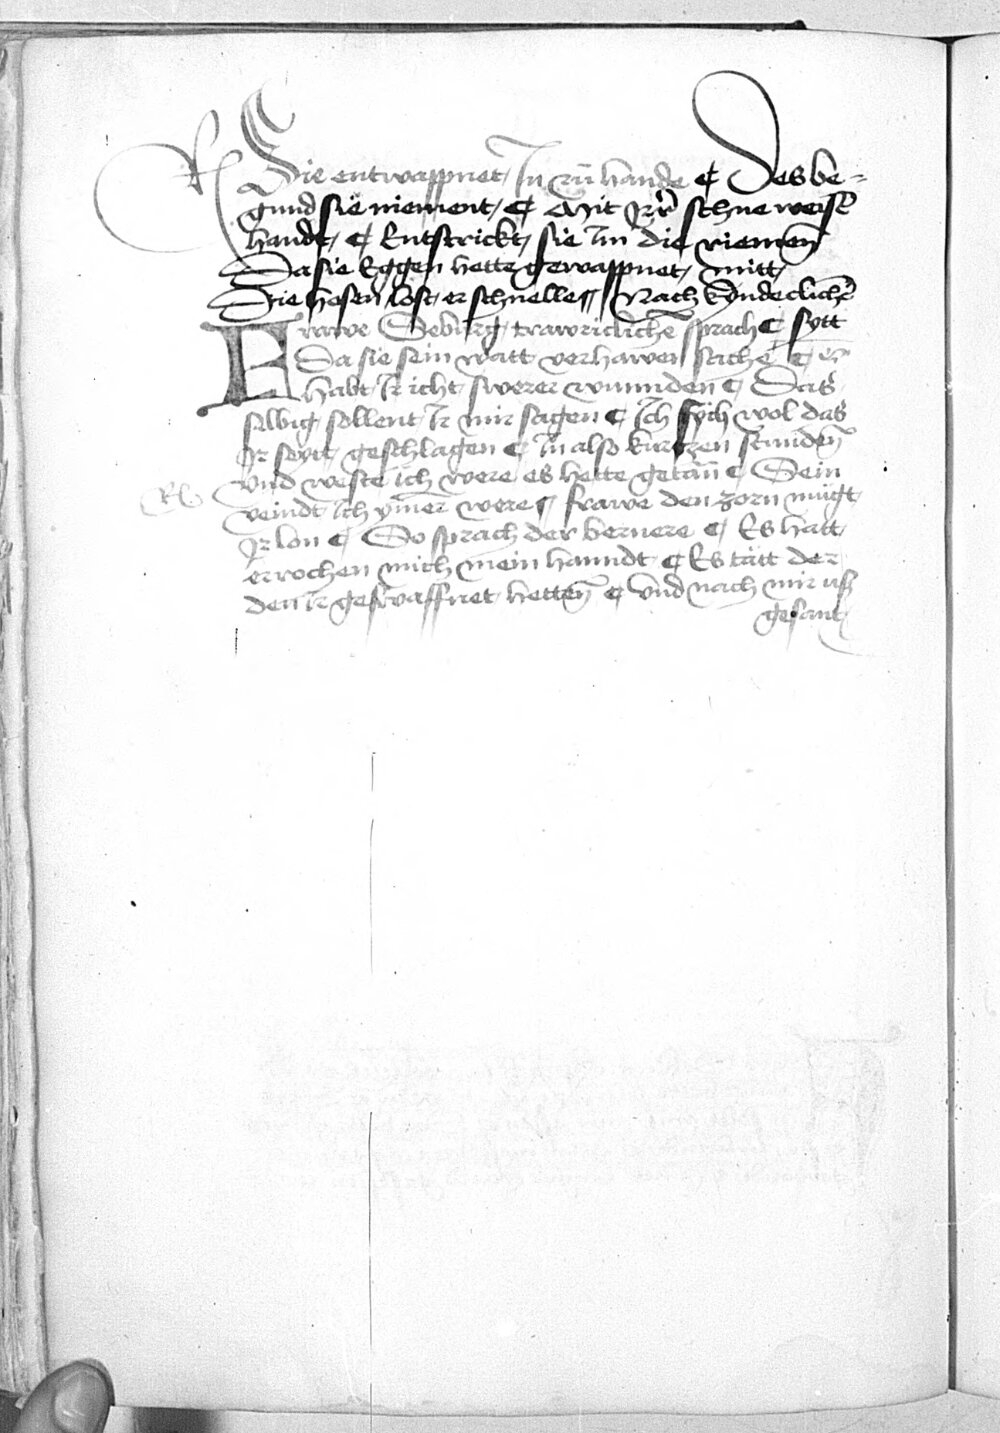 Sie entwappnet In zu hande ¶ Des be=
gund sie niement ¶ Mit Irr schne weisē
handt ¶ Entstrickt sie Im die riemen
Da sie Eggen hette gewappnet mitt
Die hosen lost er schnelle ¶ Nach kyndeclichē
Frawe Seburg trawriclichen sprach ¶ sytt
Da sie sein watt verhawen sache ¶
Habt Ir icht swerer wunnden ¶ Das
selbig sollent Ir mir sagen ¶ Ich sych wol das
Ir seytt geschlagen ¶ In also kurtzen stunden
Vnd weste ich were es hette getan ¶ Sein
veindt ich ymer were ¶ frawe den zorn mügt
Ir lon ¶ So sprach der bernere ¶ Es hatt
errochen mich mein hanndt ¶ Es tätt der
den Ir gewaffnet hetten ¶ vnd nach mir uß
gesant